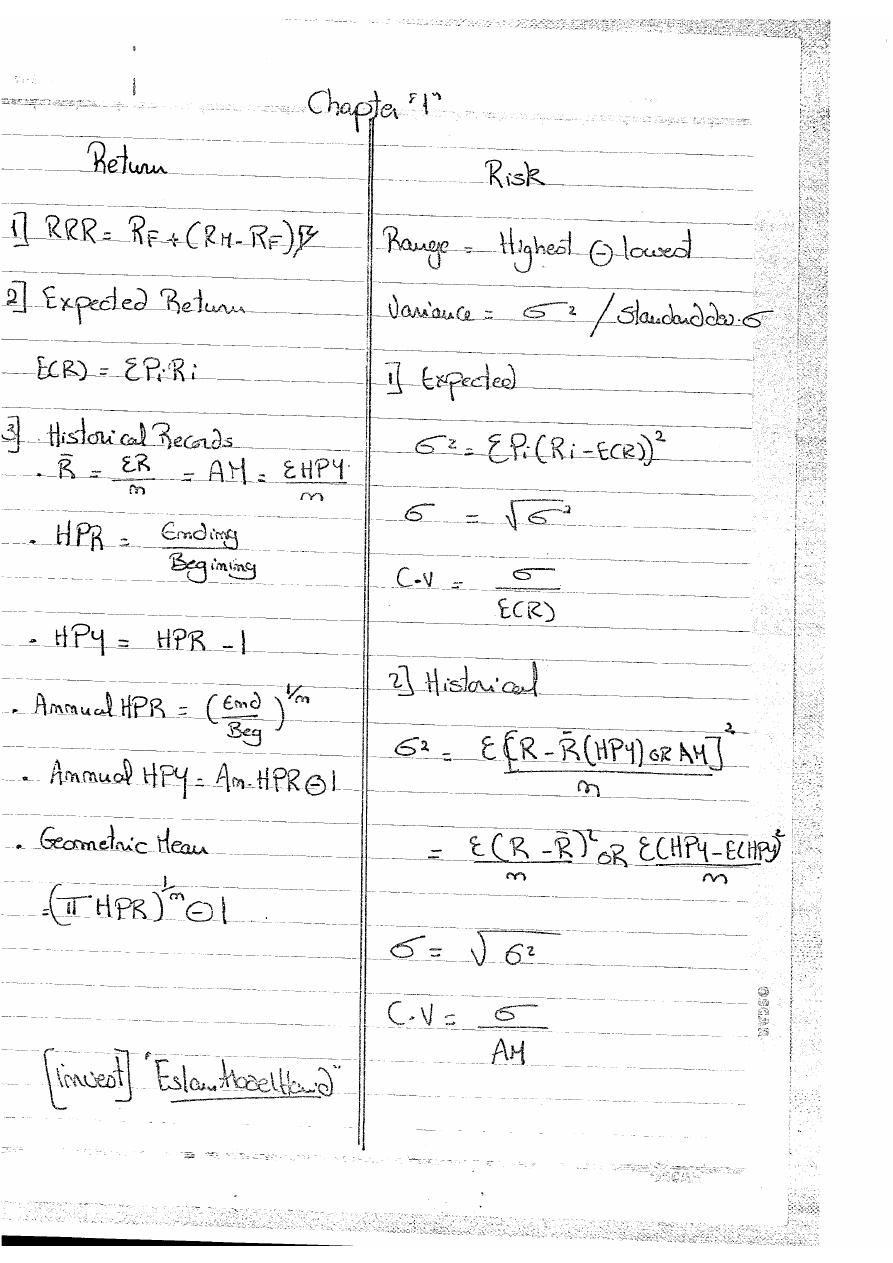 Chapter "1"
Return
1] RRR = RF + (RM - RF)β
2] Expected Return
E(R) = ΣPi Ri
3] . Historical Records
. R̄ = ΣR/n = AM = ΣHPY/n
. HPR = Ending/Begining
. HPY = HPR - 1
. Annual HPR = (End/Beg)^1/n
. Annual HPY = An. HPR ⊖ 1
. Geometric Mean
= (π HPR)^1/n ⊖ 1
[invest] "Eslam
Risk
Range = Highest ⊖ lowest
Variance = σ² / Standard dev. σ
1] Expected
σ² = ΣPi (Ri - E(R))²
σ = √σ²
C.V = σ/E(R)
2] Historical
σ² = Σ[R - R̄ (HPY) OR AM]²/n
= Σ(R - R̄)²/n OR Σ(HPY - E(HPY)²/n
σ = √σ²
C.V = σ/AM